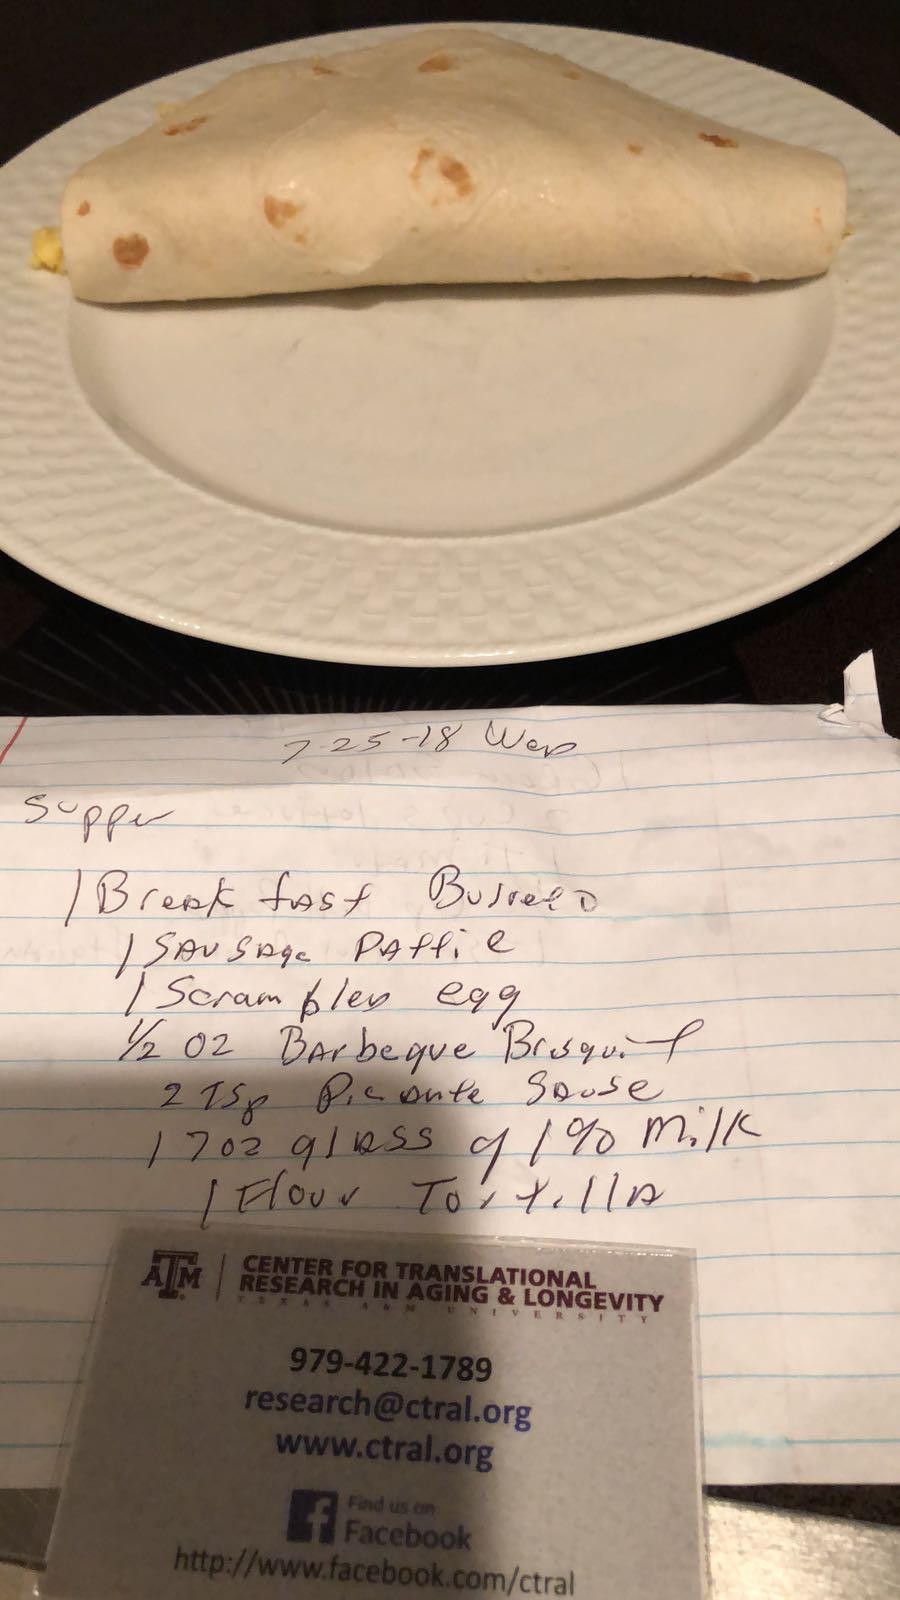 7-25-18 Wed
Supper
1 Breakfast Burreto
1 Sausage Pattie
1 Scrambled egg
1/2 oz Barbeque Brisquit
2 Tsp Picante Sause
1 7oz glass of 1% Milk
1 Flour Tortilla
ATM CENTER FOR TRANSLATIONAL
RESEARCH IN AGING & LONGEVITY
TEXAS A&M UNIVERSITY
979-422-1789
research@ctral.org
www.ctral.org
f Find us on
Facebook
http://www.facebook.com/ctral